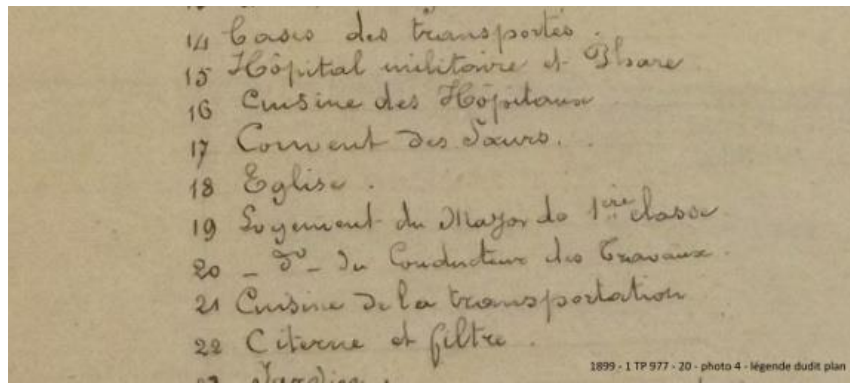 14 Cases des transportés.
15 Hôpital militaire et Phare
16 Cuisine des Hôpitaux
17 Couvent des Sœurs.
18 Eglise.
19 Logement du Major de 1ère classe
20 - do - du Conducteur des Travaux.
21 Cuisine de la transportation
22 Citerne et filtre.
1899 - 1 TP 977 - 20 - photo 4 - légende dudit plan